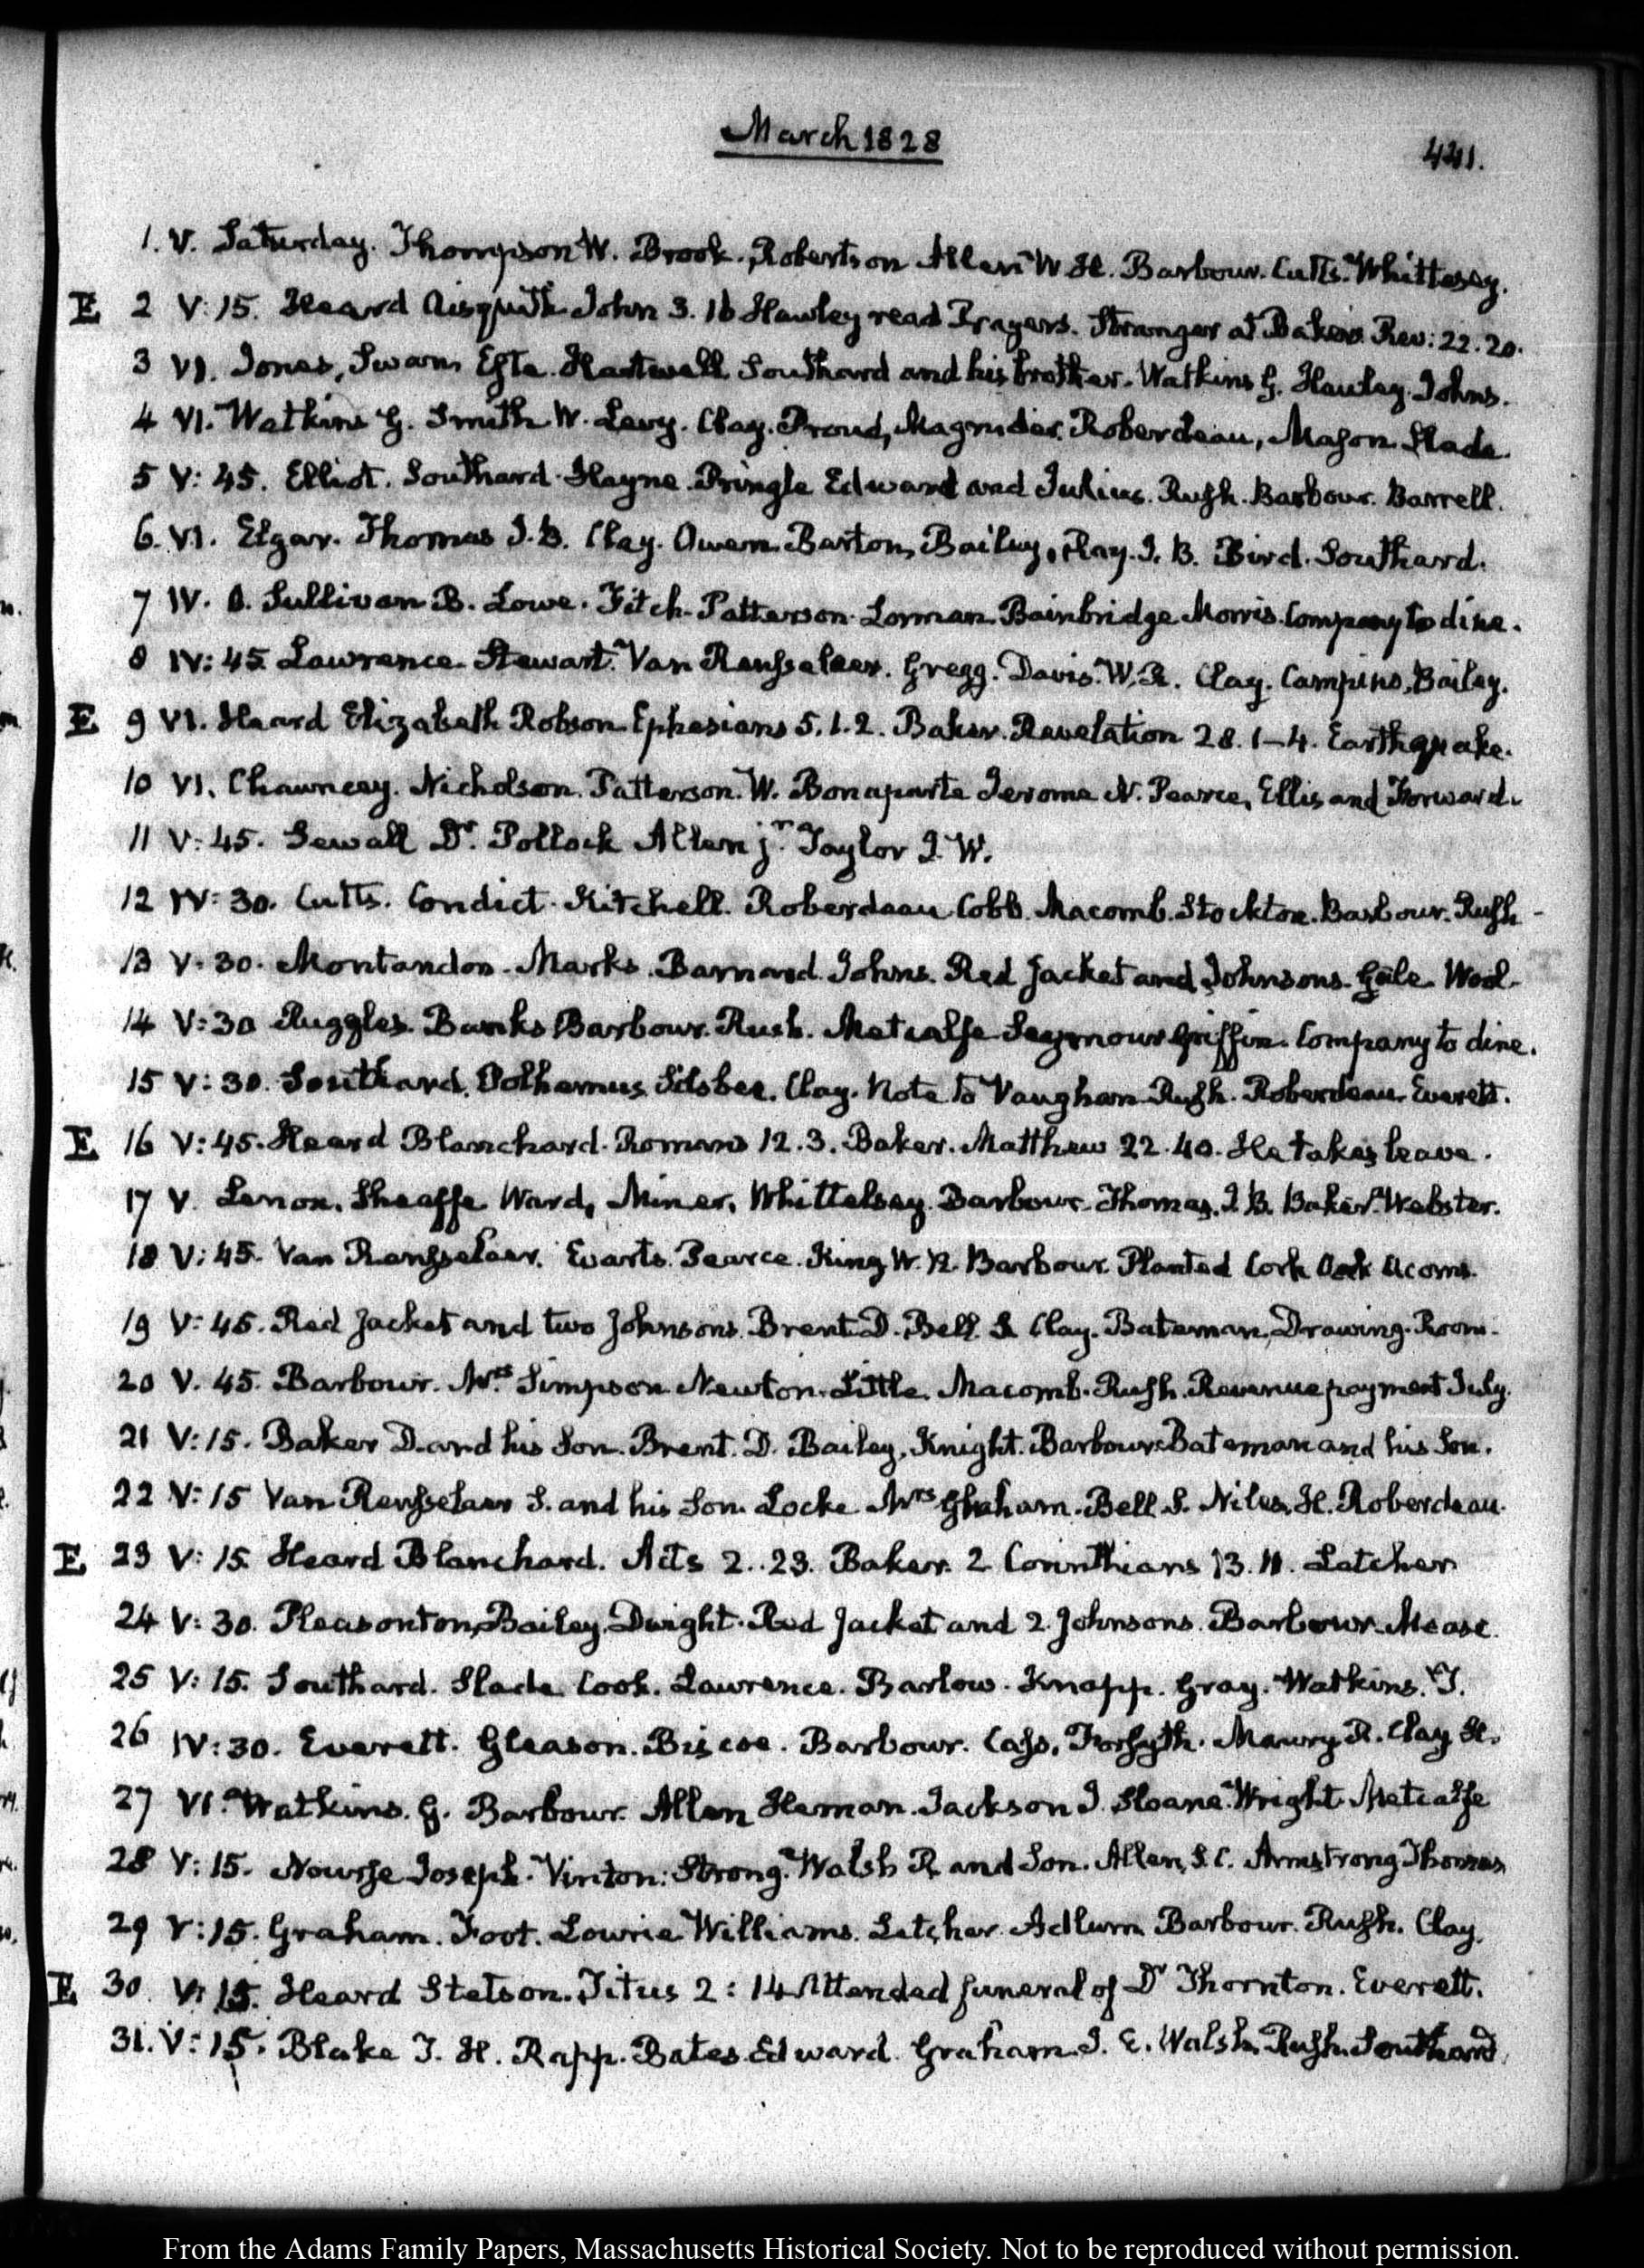 March 1828
441.
1. V. Saturday. Thompson W. Brook. Robertson Allen W. H. Barbour. Cutts. Whittlesey.
E 2 V: 15. Heard Aisquith John 3. 16 Hawley read Prayers. Stranger at Bakers. Rev: 22. 20.
3 VI. Jones, Swann, Este. Hartwell. Southard and his brother. Watkins G. Hawley. Johns.
4 VI. Watkins G. Smith W. Levy. Clay. Proud, Magruder. Roberdeau, Mason. Slade.
5 V: 45. Elliot. Southard. Hayne. Pringle Edward and Julius. Rush. Barbour. Barrell.
6. VI. Elgar. Thomas J. B. Clay. Owen. Barton, Bailey, Ray. J. B. Bird. Southard.
7 IV. O. Sullivan B. Lowe. Fitch. Patterson. Lorman. Bainbridge Morris. Company to dine.
8 IV: 45 Lawrence. Stewart. Van Rensselaer. Gregg. Davis. W. R. Clay. Campino, Bailey.
E 9 VI. Heard Elizabeth Robson Ephesians 5. 1. 2. Baker. Revelation 28. 1–4. Earthquake.
10 VI. Chauncey. Nicholson. Patterson. W. Bonaparte Jerome N. Pearce, Ellis and Forward.
11 V: 45. Sewall Dr. Pollock Allen jr. Taylor J. W.
12 IV: 30. Cutts. Condict. Kitchell. Roberdeau Cobb. Macomb. Stockton. Barbour. Rush
13 V. 30. Montandon. Marks. Barnard. Johns. Red Jacket and Johnsons. Gale. Wool.
14 V: 30 Ruggles. Banks Barbour. Rush. Metcalfe Seymour Griffin. Company to dine.
15 V: 30. Southard. Polhemus, Silsbee. Clay. Note to Vaughan. Rush. Roberdeau. Everett.
E 16 V: 45. Heard Blanchard. Romans 12. 3. Baker. Matthew 22. 40. He takes leave.
17 V. Lenox. Sheaffe Ward, Miner, Whittelsey. Barbour. Thomas. J. B. Baker. Webster.
18 V: 45. Van Rensselaer. Evarts. Pearce. King W. R. Barbour. Planted Cork Oak Acorns.
19 V: 45. Red Jacket and two Johnsons. Brent D. Bell. S. Clay. Bateman, Drawing-Room.
20 V. 45. Barbour. Mrs Simpson. Newton. Little. Macomb. Rush. Revenue payment July.
21 V: 15. Baker D. and his Son. Brent. D. Bailey, Knight. Barbour. Bateman and his Son.
22 V: 15 Van Rensselaer S. and his Son. Locke Mrs Graham. Bell S. Niles, H. Roberdeau.
E 23 V: 15. Heard Blanchard. Acts 2. 23. Baker. 2 Corinthians 13. 11. Letcher
24 V: 30. Pleasonton, Bailey, Dwight. Red Jacket and 2. Johnsons. Barbour. Mease.
25 V: 15. Southard. Slade. Cook. Lawrence. Barlow. Knapp. Gray. Watkins. T.
26 IV: 30. Everett. Gleason. Biscoe. Barbour. Cass, Forsyth. Maury R. Clay H.
27 VI. Watkins. G. Barbour. Allen Heman. Jackson J. Sloane. Wright. Metcalfe
28 V: 15. Nourse Joseph. Vinton: Strong. Walsh R. and Son. Allen, S. C. Armstrong Thomas
29 V: 15. Graham. Foot. Lowrie Williams. Letcher. Adlum. Barbour. Rush. Clay.
E 30 V: 15. Heard Stetson. Titus 2: 14 Attended funeral of Dr Thornton. Everett.
31. V: 15. Blake T. H. Rapp. Bates. Edward. Graham. J. E. Walsh. Rush. Southard.
From the Adams Family Papers, Massachusetts Historical Society. Not to be reproduced without permission.